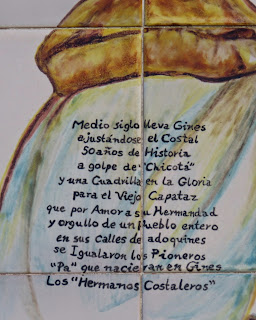 Medio siglo lleva Gines
ejustándose el Costal
50años de Historia
a golpe de "Chicotá"
y una Cuadrilla en la Gloria
para el Viejo Capataz
que por Amor a su Hermandad
y orgullo de un Pueblo entero
en sus calles de adoquines
se Igualaron los Pioneros
"Pa" que nacieran en Gines
Los "Hermanos Costaleros"